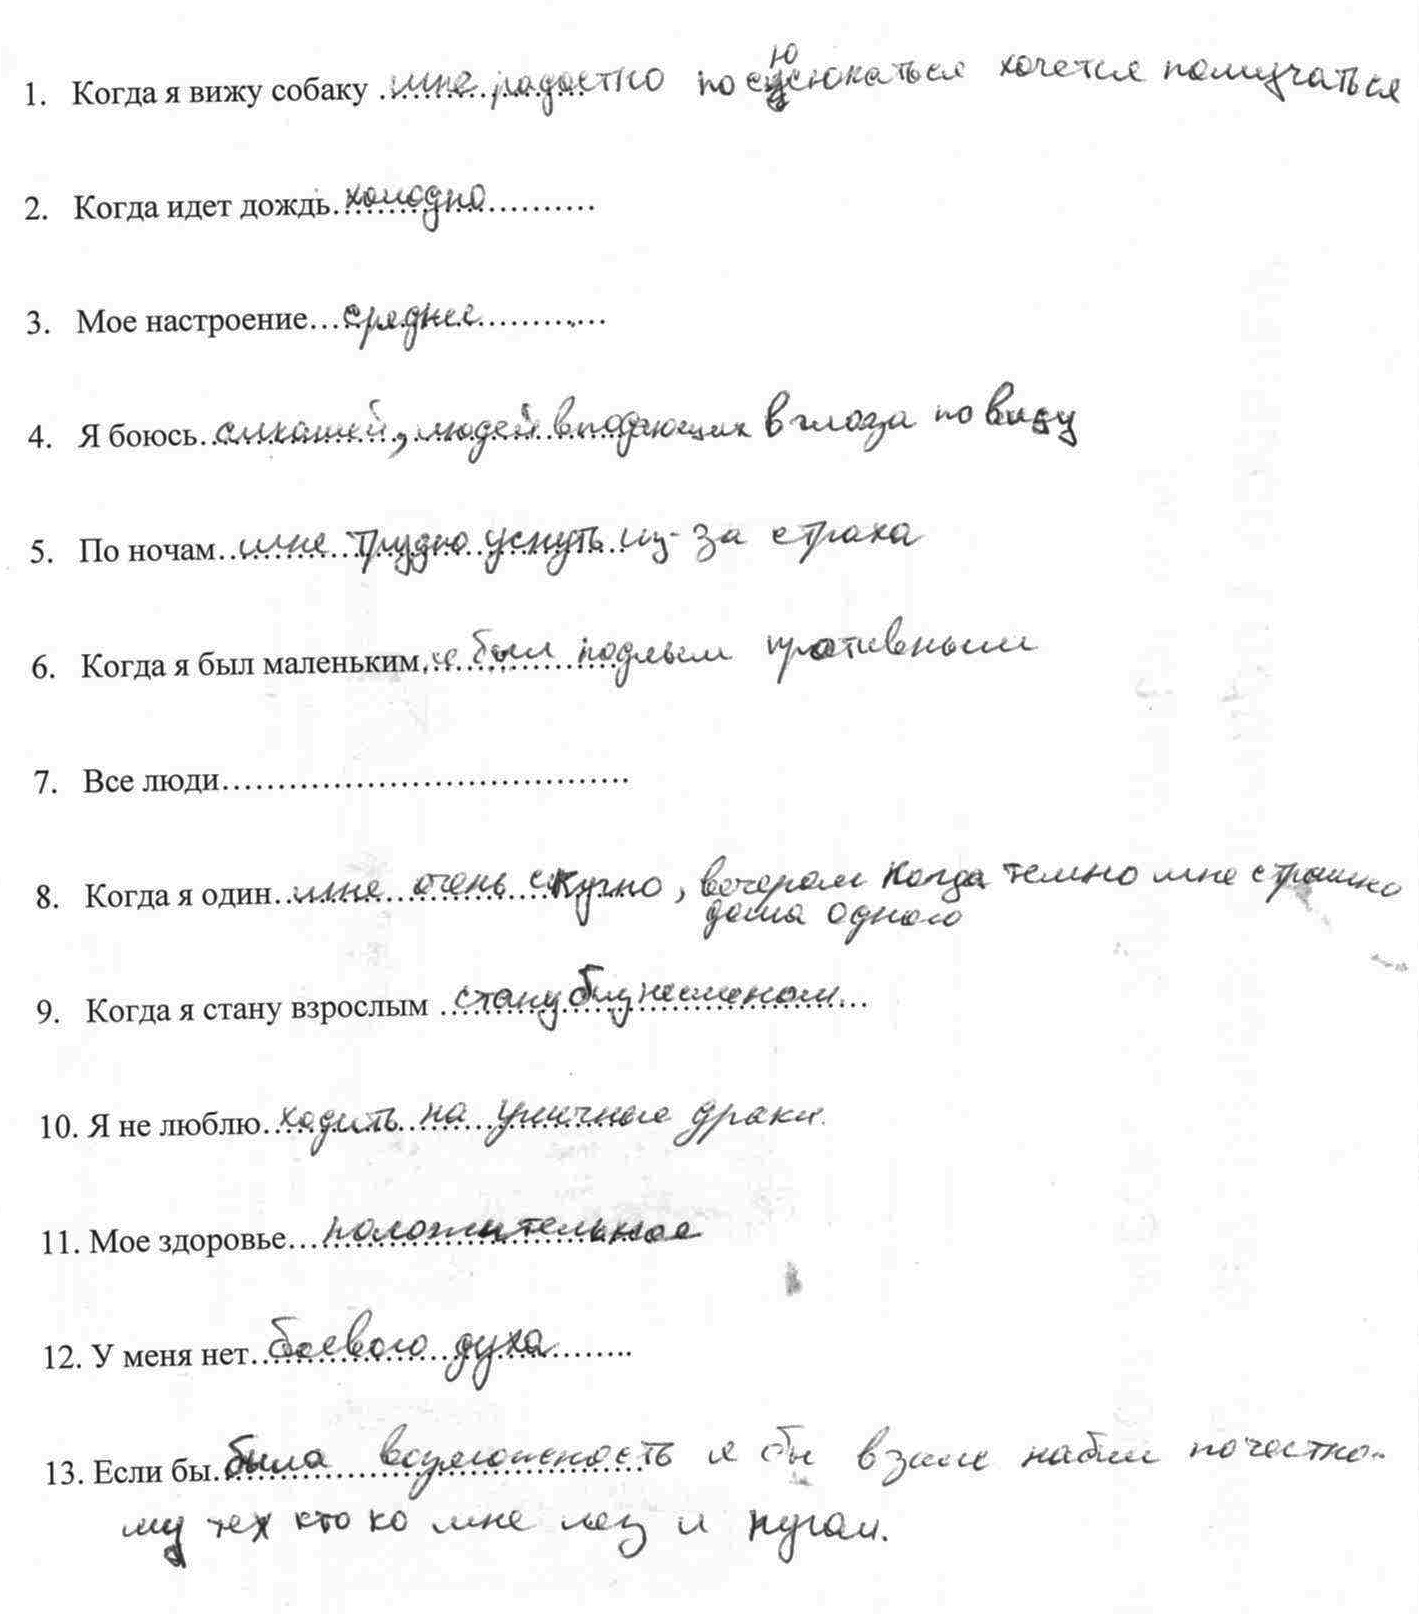 1. Когда я вижу собаку мне радостно посюсюкаться хочется помучаться
2. Когда идет дождь холодно
3. Мое настроение средние
4. Я боюсь людей в глаза по виду
5. По ночам мне трудно уснуть из-за страха
6. Когда я был маленьким я был подлым противным
7. Все люди
8. Когда я один мне очень скучно, вечером когда темно мне страшно
дома одного
9. Когда я стану взрослым стану бизнесменом
10. Я не люблю ходить на уличные драки.
11. Мое здоровье положительное
12. У меня нет боевого духа
13. Если бы была возможность я бы взял набил почестно-
му тех кто ко мне лез и пугал.